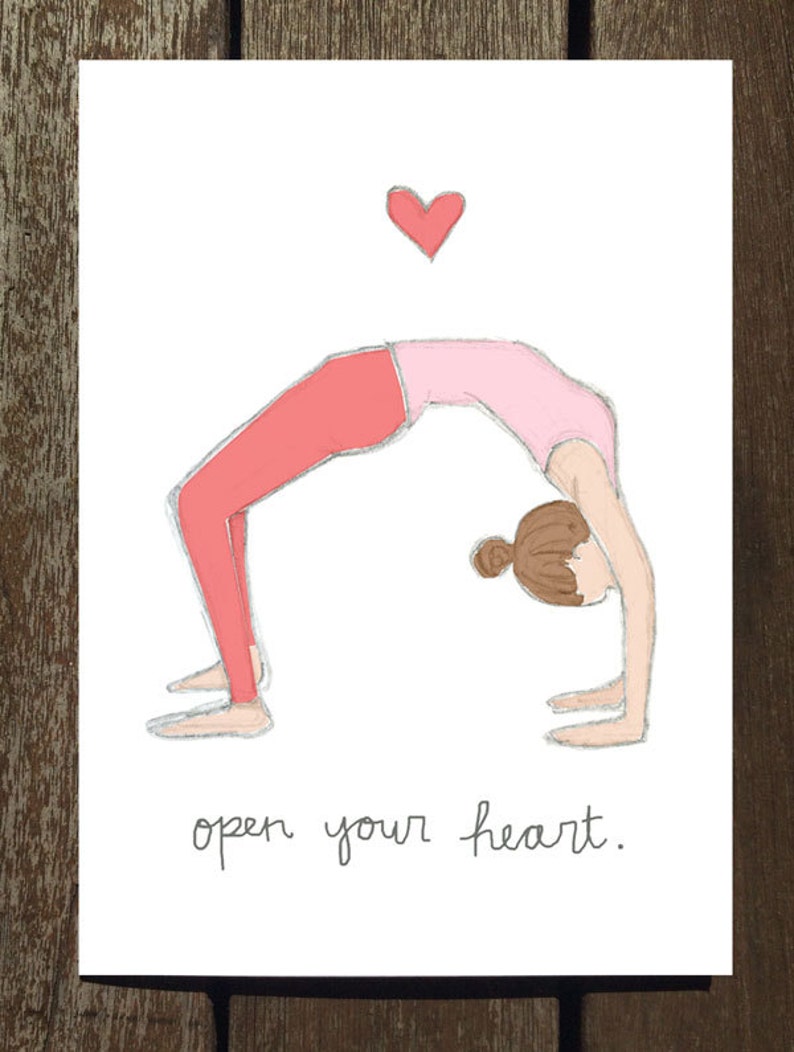 open your heart.